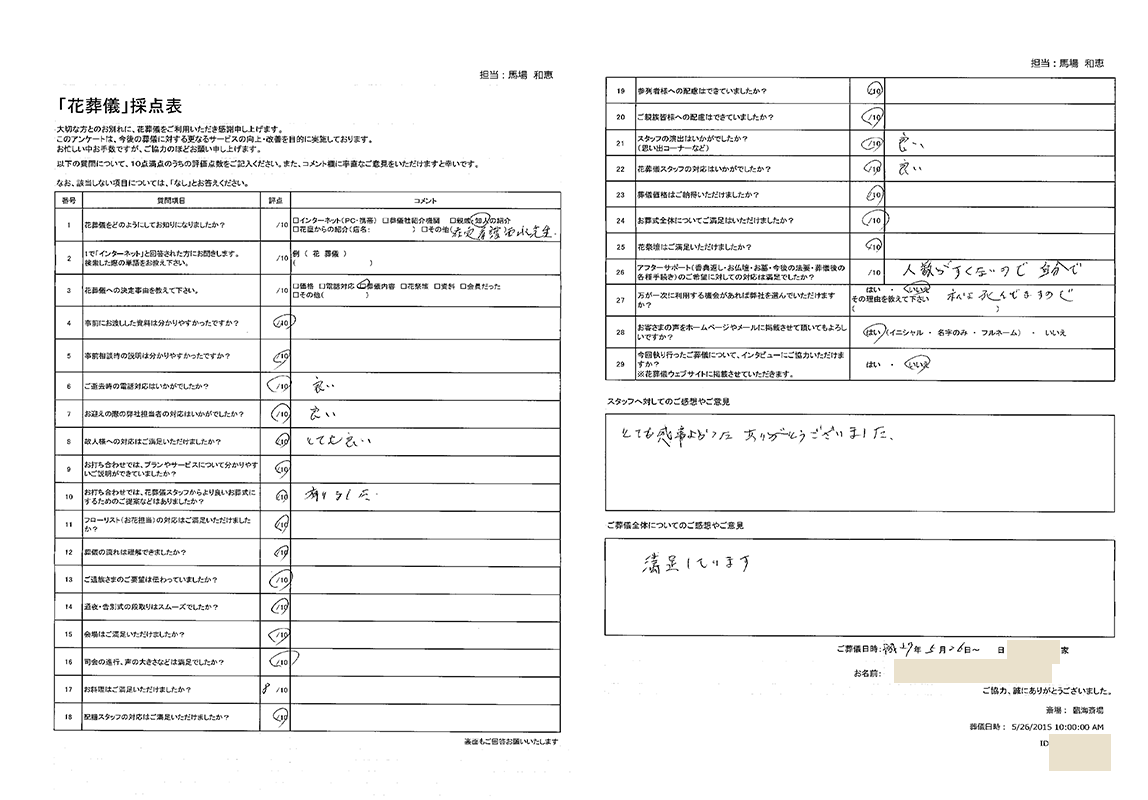 担当：馬場 和恵
「花葬儀」採点表
大切な方とのお別れに、花葬儀をご利用いただき感謝申し上げます。
このアンケートは、今後の葬儀に対する更なるサービスの向上・改善を目的に実施しております。
お忙しい中お手数ですが、ご協力のほどお願い申し上げます。
以下の質問について、10点満点のうちの評価点数をご記入ください。また、コメント欄に率直なご意見をいただけますと幸いです。
なお、該当しない項目については、「なし」とお答えください。
番号 質問項目 評点 コメント
1 花葬儀をどのようにしてお知りになりましたか？ /10 □インターネット（PC・携帯） □葬儀社紹介機関 □親戚・知人の紹介
□花屋からの紹介（店名： ） □その他（
2 1で「インターネット」と回答された方にお聞きします。
検索した際の単語をお教え下さい。 /10 例（ 花 葬儀 ）
（ ）
3 花葬儀への決定事由を教えて下さい。 /10 □価格 □電話対応 □葬儀内容 □花祭壇 □資料 □会員だった
□その他（ ）
4 事前にお渡しした資料は分かりやすかったですか？ /10
5 事前相談時の説明は分かりやすかったですか？ /10
6 ご逝去時の電話対応はいかがでしたか？ /10 良い
7 お迎えの際の弊社担当者の対応はいかがでしたか？ /10 良い
8 故人様への対応はご満足いただけましたか？ /10 とても良い
9 お打ち合わせでは、プランやサービスについて分かりやす
いご説明ができていましたか？ /10
10 お打ち合わせでは、花葬儀スタッフからより良いお葬式に
するためのご提案などはありましたか？ /10 有りました
11 フローリスト（お花担当）の対応はご満足いただけました
か？ /10
12 葬儀の流れは理解できましたか？ /10
13 ご遺族さまのご要望は伝わっていましたか？ /10
14 通夜・告別式の段取りはスムーズでしたか？ /10
15 会場はご満足いただけましたか？ /10
16 司会の進行、声の大きさなどは満足でしたか？ /10
17 お料理はご満足いただけましたか？ 8 /10
18 配膳スタッフの対応はご満足いただけましたか？ /10
裏面もご回答お願いいたします
担当：馬場 和恵
19 参列者様への配慮はできていましたか？ /10
20 ご親族皆様への配慮はできていましたか？ /10
21 スタッフの演出はいかがでしたか？
（思い出コーナーなど） /10 良い
22 花葬儀スタッフの対応はいかがでしたか？ /10 良い
23 葬儀価格はご納得いただけましたか？ /10
24 お葬式全体についてご満足はいただけましたか？ /10
25 花祭壇はご満足いただけましたか？ /10
26 アフターサポート（香典返し・お仏壇・お墓・今後の法要・葬儀後の
各種手続き）のご希望に対しての対応は満足でしたか？ /10 人数がすくないので 自分で
27 万が一次に利用する機会があれば弊社を選んでいただけます
か？ はい ・ いいえ
その理由を教えて下さい 私は死んでますので
（ ）
28 お客さまの声をホームページやメールに掲載させて頂いてもよろし
いですか？ はい （イニシャル ・ 名字のみ ・ フルネーム） ・ いいえ
29 今回執り行ったご葬儀について、インタビューにご協力いただけま
すか？
※花葬儀ウェブサイトに掲載させていただきます。 はい ・ いいえ
スタッフへ対してのご感想やご意見
とても感じ よかった ありがとうございました、
ご葬儀全体についてのご感想やご意見
満足しています
ご葬儀日時：平成27年 5月26日～ 日 家
お名前：
ご協力、誠にありがとうございました。
斎場： 臨海斎場
葬儀日時： 5/26/2015 10:00:00 AM
ID